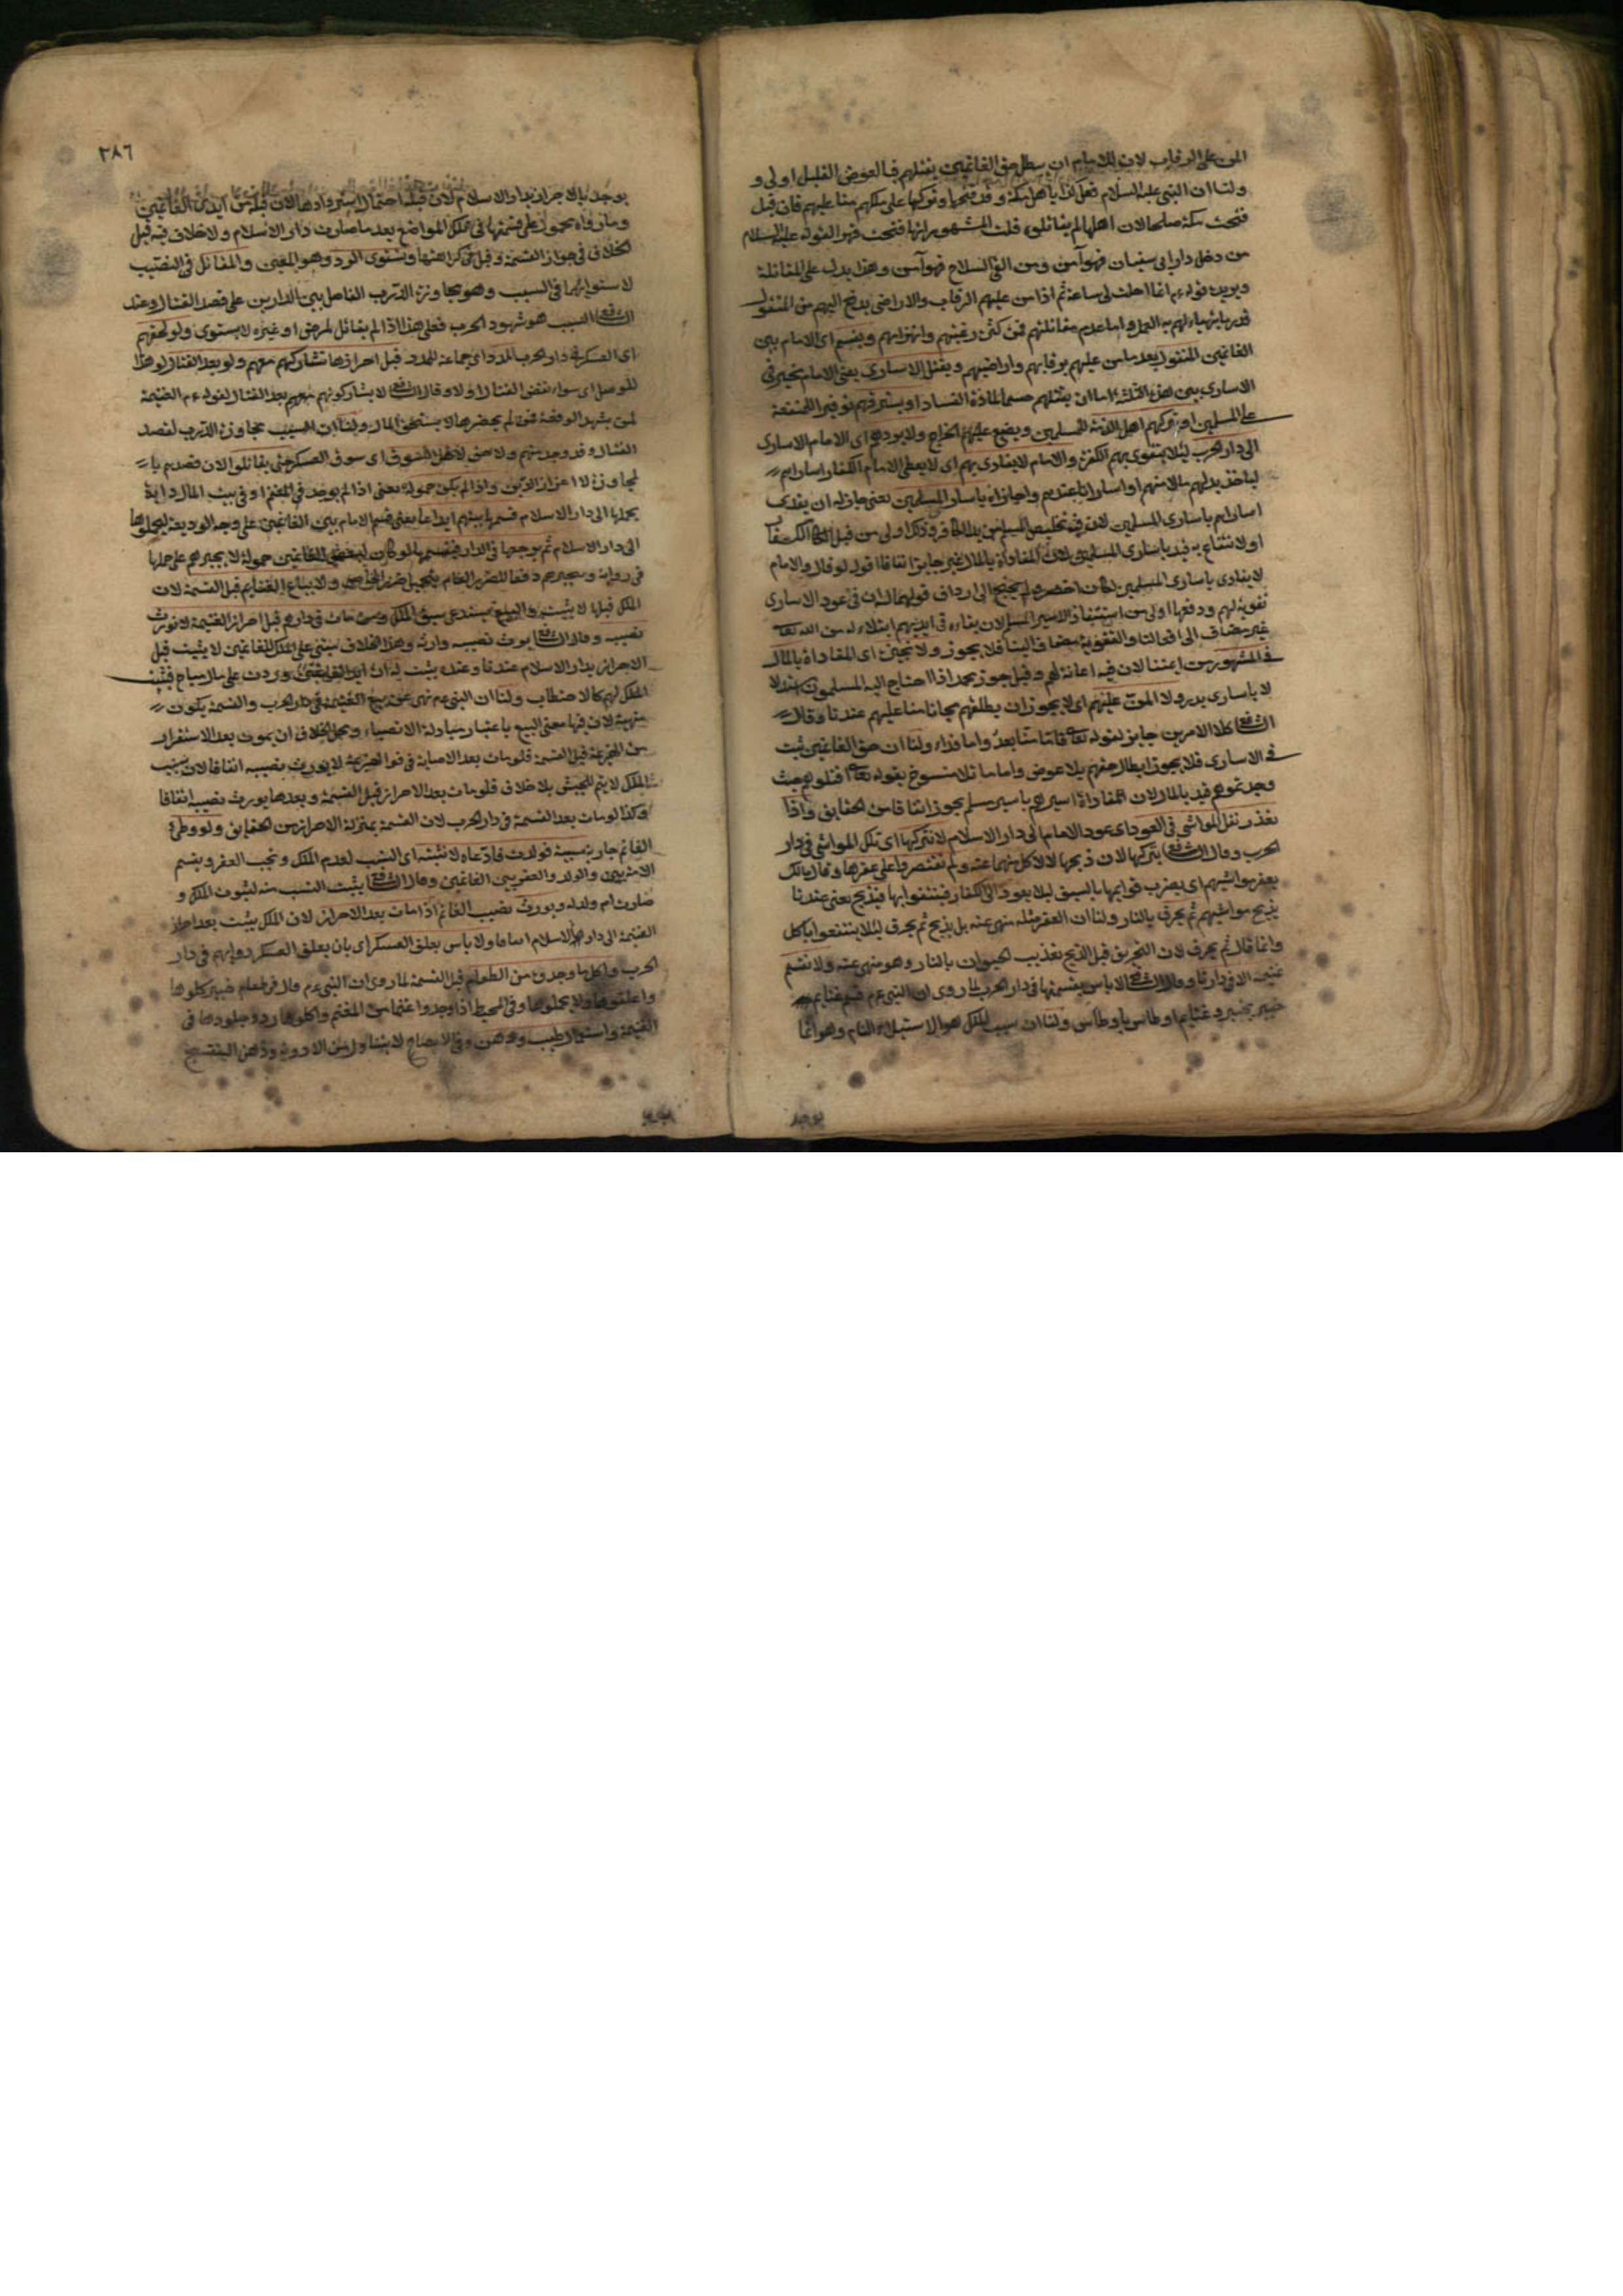 المن على الرقاب لان للامام ان يبطل حق الغانمين بقتلهم فبالعوض القليل اولى و
ولنا ان النبى عليه السلام فعل كذا باهل مكة وقد فتحها وتركها على ملكهم منا عليهم فان قيل
فتحت مكة صلحا لان اهلها لم يقاتلوه قلت المشهور انها فتحت قهرا لقوله عليه السلام
من دخل دار ابى سفيان فهو آمن ومن القى السلاح فهو آمن وهذا يدل على المقاتلة
ويريده قوله عم انما احلت لى ساعة ثم اذا من عليهم بالرقاب والاراضى يدفع اليهم من المنقول
قدر ما يتهياء لهم به العمل واما عدم مقاتلتهم فمن كثرة رعبهم وانهزامهم ويقسم اى الامام بين
الغانمين المنقول بعد ما من عليهم برقابهم واراضيهم ويقتل الاسارى يعنى الامام يتخير فى
الاسارى بين هذه الثلثة اما ان يقتلهم حسما لمادة الفساد او يسترقهم توفيرا للمنفعة
على المسلمين او يتركهم اهل الذمة للمسلمين ويضع عليهم الخراج ولا يردهم اى الامام الاسارى
الى دار الحرب لئلا يتقوى بهم الكفرة والامام لا يفادى بهم اى لا يعطى الامام الكفار اساراهم
لياخذ بدلهم مالا منهم او اسارانا عندهم واجازاه باسارى المسلمين يعنى جاز له ان يفدى
اساراهم باسارى المسلمين لان فيه تخليص المسلم من يد الكافر وذلك اولى من قتل الكفار
او الانتفاع به قيد باسارى المسلمين لان المفاداة بالمال غير جايز اتفاقا اقول لو قال والامام
لا يفادى باسارى المسلمين لكان اخصر ولم يحتج الى ارداف قولهما له ان فى عود الاسارى
تقوية لهم ودفعها اولى من استنقاذ الاسير المسلم لان بقاءه فى ايديهم ابتلاء له من الله تعالى
غير مضاف الى افعالنا والتقوية مضاف الينا فلا يجوز ولا نجيزه اى المفاداة بالمال
فى المشهور من ائمتنا لان فيه اعانة لهم وقيل جوزه محمد اذا احتاج اليه المسلمون
لا باسارى بدر ولا المن عليهم اى لا يجوز ان يطلقهم مجانا منا عليهم عندنا وقال
الشافعى كلا الامرين جايز لقوله تعالى فاما منا بعد واما فداء ولنا ان حق الغانمين ثبت
فى الاسارى فلا يجوز ابطال حقهم بلا عوض واما ما تلاه منسوخ بقوله تعالى اقتلوهم حيث
وجدتموهم قيد بالمال لان المفاداة اسيرهم باسير مسلم يجوز اتفاقا من الحقايق واذا
تعذر نقل المواشى فى العود اى عود الامام الى دار الاسلام لا نتركها اى تلك المواشى فى دار
الحرب وقال الشافعى يتركها لان ذبحها لا لاكل منهى عنه ولم نقتصر على عقرها وقال مالك
يعقر مواشيهم اى يضرب قوايمها بالسيف لئلا يعود الى الكفار فينتفعوا بها فيذبح يعنى عندنا
يذبح مواشيهم ثم يحرق بالنار ولنا ان العقر مثلة منهى عنه بل يذبح ثم يحرق لئلا ينتفعوا باكل
وانما قال ثم يحرق لان التحريق قبل الذبح تعذيب الحيوان بالنار وهو منهى عنه ولا نقسم
غنيمة الا فى دارنا وقال الشافعى لا باس بقسمتها فى دار الحرب لما روى ان النبى عم قسم غنايم
خيبر بخيبر وغنايم اوطاس باوطاس ولنا ان سبب الملك هو الاستيلاء التام وهو انما
يوجد
٢٨٦
يوجد بالاحراز بدار الاسلام لان قبله احتمال استردادها لان قبله من ايدى الغانمين
وما رواه محمول على قسمتها فى تلك المواضع بعد ما صارت دار الاسلام ولا خلاف فيه قيل
الخلاف فى جواز القسمة وقيل فى كراهتها ويستوى الردء وهو المعين والمقاتل فى النصيب
لاستوائهما فى السبب وهو مجاوزة الدرب الفاصل بين الدارين على قصد القتال وعند
الشافعى السبب هو شهود الحرب فعلى هذا اذا لم يقاتل لمرض او غيره لا يستوى ولو لحقهم
اى العسكر فى دار الحرب المدد اى جماعة للمدد قبل احرازها نشاركهم معهم ولو بعد القتال لو هذا
للوصل اى سواء نقض القتال اولا وقال الشافعى لا يشاركونهم معهم بعد القتال لقوله عم الغنيمة
لمن شهد الوقعة فمن لم يحضرها لا يستحق المال ولنا ان السبب مجاوزة الدرب لقصد
القتال وقد وجد منهم ولا حق لاهل السوق اى سوق العسكر حتى يقاتلوا لان قصدهم با
لمجاوزة لا اعزاز الدين واذا لم يكن حمولة يعنى اذا لم يوجد فى المغنم او فى بيت المال دابة
يحملها الى دار الاسلام قسمها بينهم ايداعا يعنى قسم الامام بين الغانمين على وجه الوديعة ليحملوها
الى دار الاسلام ثم يرجعها فى الدار فيقسمها لو كان لبعض الغانمين حمولة لا يجبرهم على حملها
فى رواية ويجبرهم دفعا للضرر العام بتحمل ضرر الخاص ولا يباع الغنايم قبل القسمة لان
الملك قبلها لا يثبت والبيع يستدعى سبق الملك ومن مات فى دارهم قبل احراز الغنيمة لا نورث
نصيبه وقال الشافعى يورث نصيبه وارثه وهذا الخلاف مبنى على الملك للغانمين لا يثبت قبل
الاحراز بدار الاسلام عندنا وعنده يثبت له ان ايدى الغانمين وردت على مال مباح فيثبت
الملك لهم كالاحتطاب ولنا ان النبى عم نهى عن بيع الغنيمة فى دار الحرب والقسمة يكون
منهية لان فيها معنى البيع باعتبار مبادلة الانصباء ومحل الخلاف ان يموت بعد الاستقرار
من الهزيمة قبل القسمة فلو مات بعد الاصابة فى فور الهزيمة لا يورث نصيبه اتفاقا لان سبب
الملك لا يتم للجيش بلا خلاف فلو مات بعد الاحراز قبل القسمة وبعدها يورث نصيبه اتفاقا
وكذا لو مات بعد القسمة فى دار الحرب لان القسمة بمنزلة الاحراز من الحقايق ولو وطئ
الغانم جارية مسبية فولدت فادعاه لا نثبته اى النسب لعدم الملك ونجب العقر ويقسم
الامة بين والولد والعقر بين الغانمين وقال الشافعى يثبت النسب منه لثبوت الملك و
صارت ام ولد له ويورث نصيب الغانم اذا مات بعد الاحراز لان الملك يثبت بعد احراز
الغنيمة الى دار الاسلام اتفاقا ولا باس بعلف العسكر اى بان يعلف العسكر دوابهم فى دار
الحرب واكل ما وجدوه من الطعام قبل القسمة لما روى ان النبى عم قال فى طعام خيبر كلوها
واعلفوها ولا تحملوها وفى المحيط اذا وجدوا غنما من المغنم واكلوها ردوا جلودها فى
الغنيمة واستعمال طيب ودهن وفى الايضاح لا يتناول من الادوية ودهن البنفسج